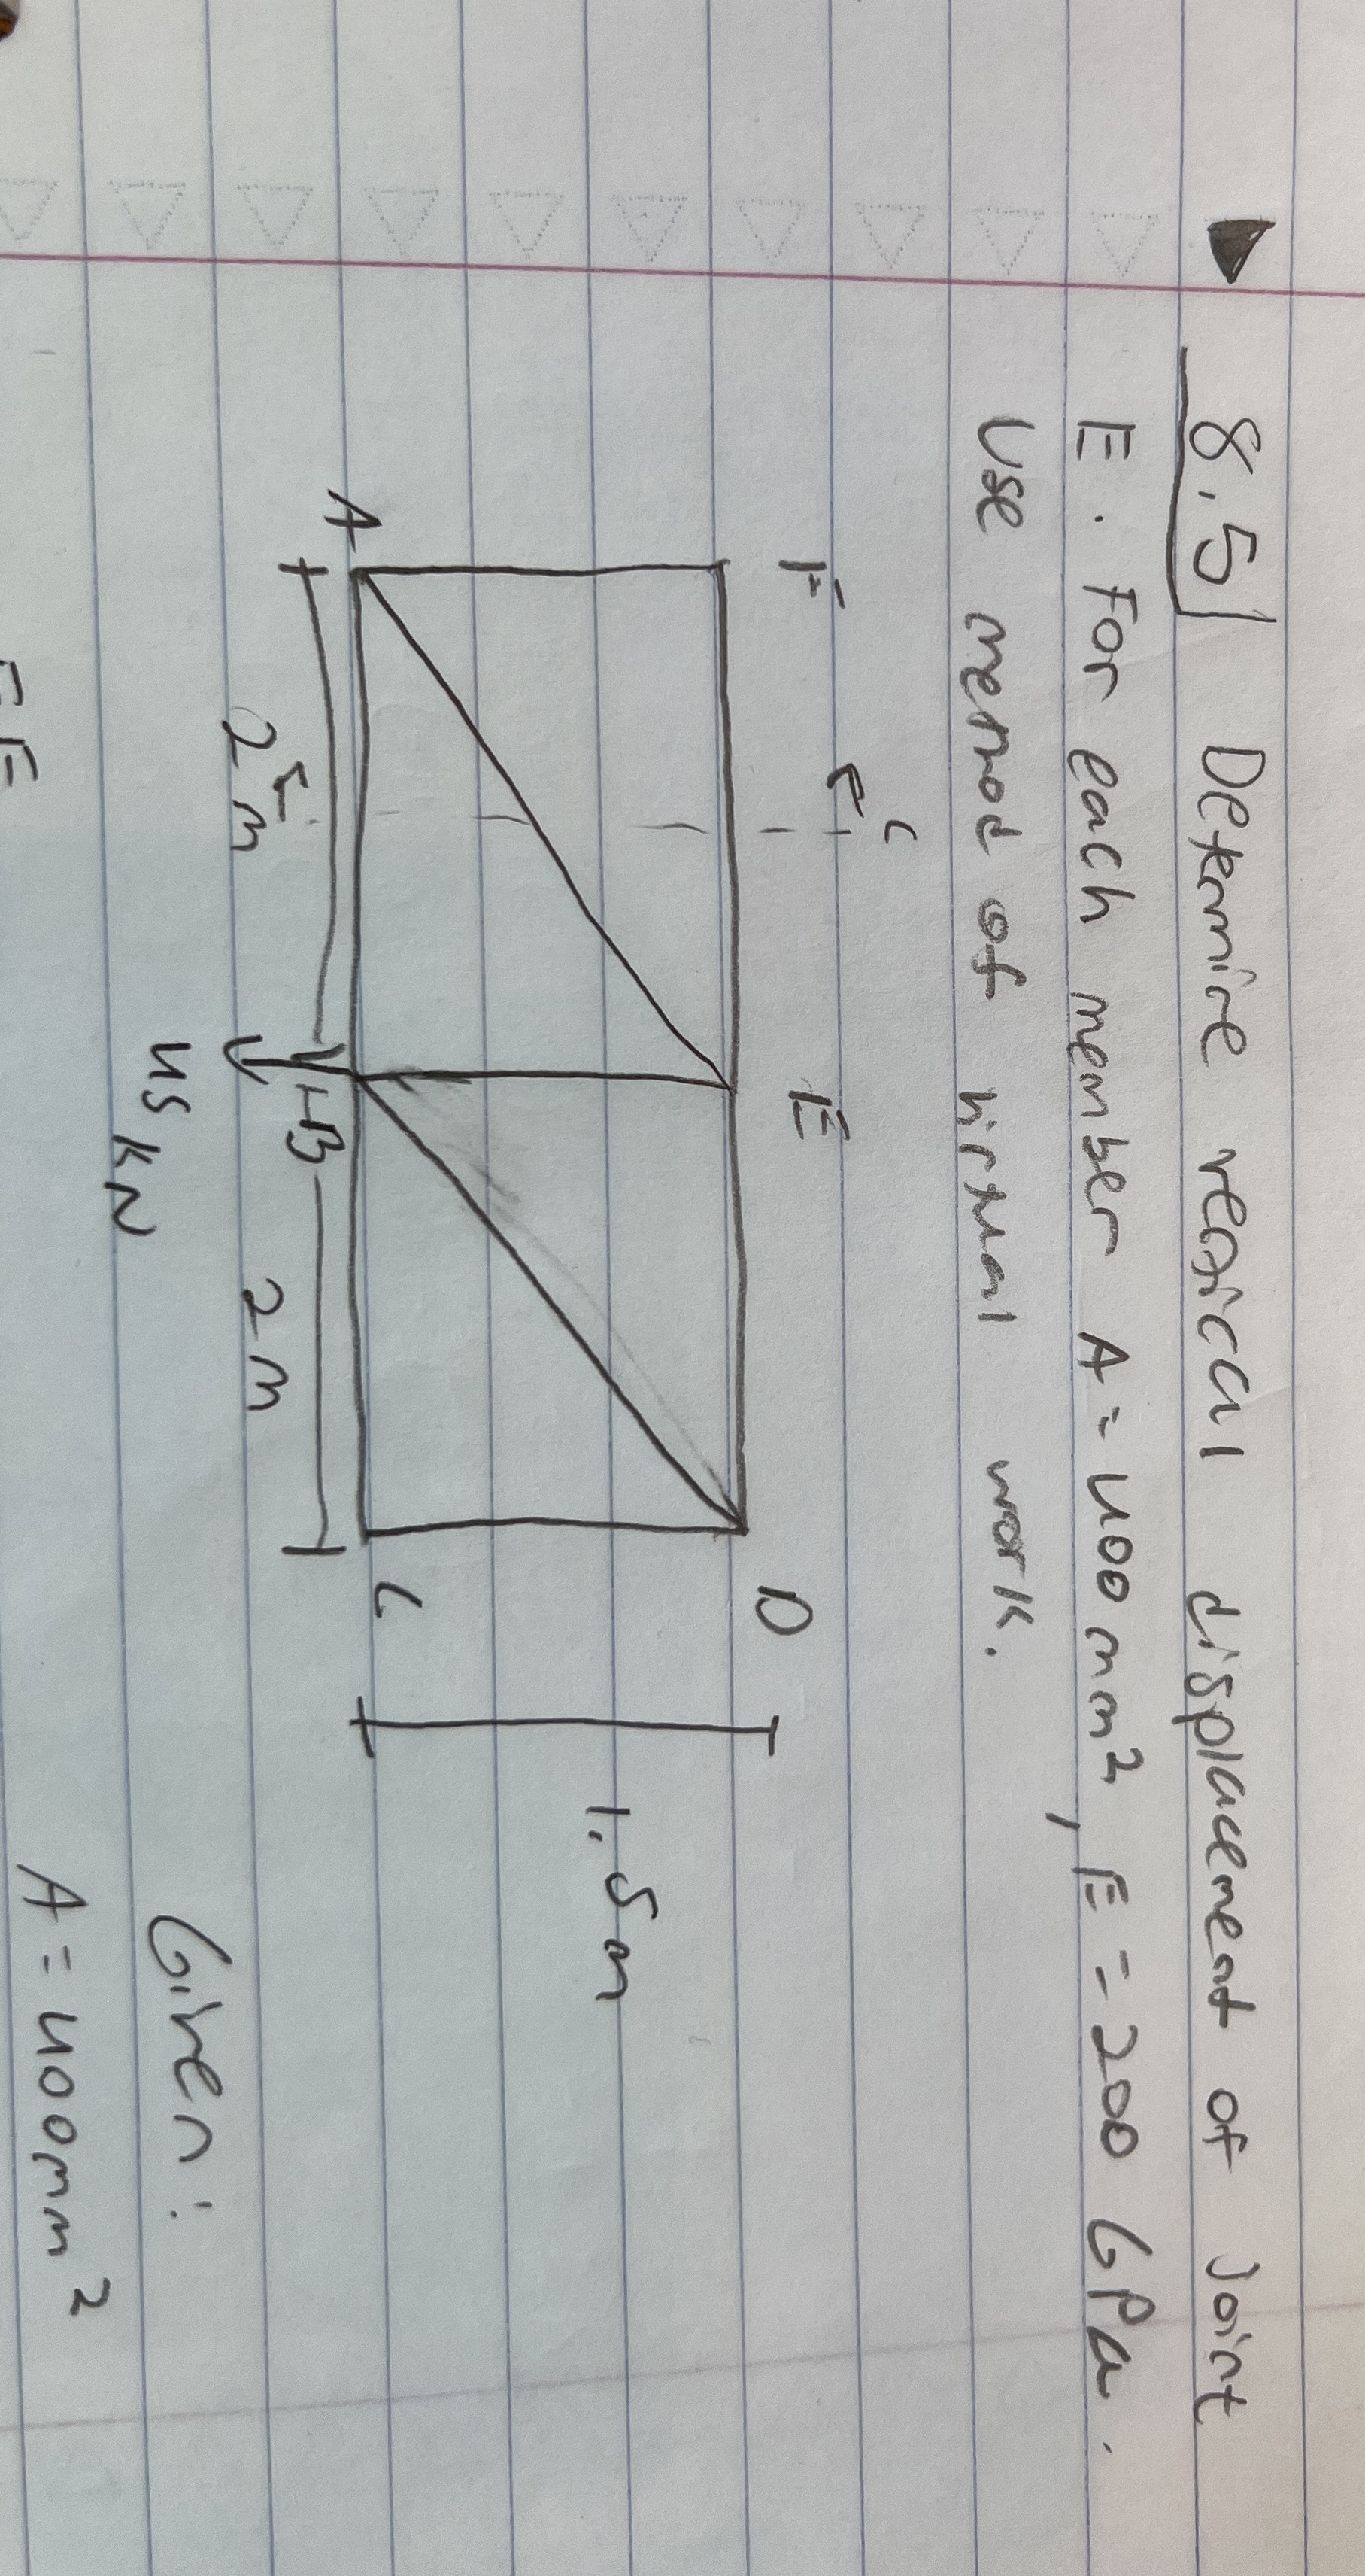 8.5 Determine vertical displacement of Joint
E. For each member A = 400 mm², E = 200 GPa.
Use method of virtual work.
C
F
E
D
1.5 m
A
B
C
2 m
2 m
45 kN
Given:
A = 400mm²